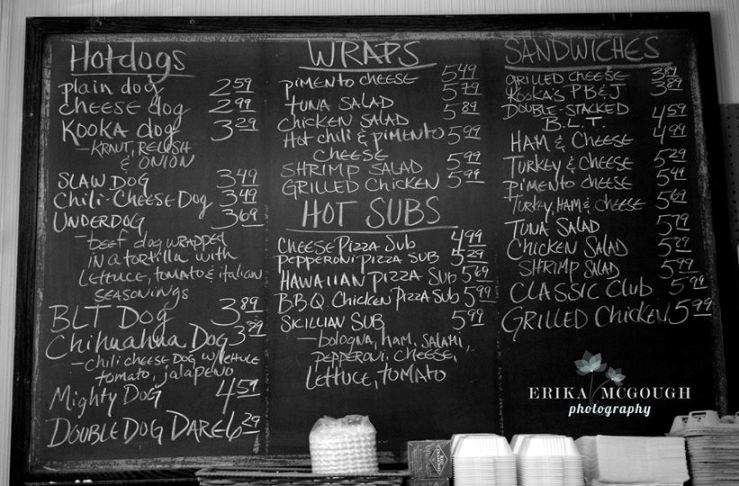 Hotdogs
plain dog 2.59
CHEESE dog 2.99
KOOKA dog 3.29
-KRAUT, RELISH
& ONION
SLAW DOG 3.49
Chili-Cheese Dog 3.49
UNDERDOG 3.69
-beef dog wrapped
in a tortilla with
LETTUCE, tomato & italian
SEASONINGS
BLT DOG 3.89
Chihuahua Dog 3.89
-Chili cheese DOG w/ lettuce
tomato, jalapeno
Mighty DOG 4.59
DOUBLE DOG DARE 6.29
WRAPS
pimento CHEESE 5.49
TUNA SALAD 5.79
CHICKEN SALAD 5.89
Hot chili & pimento 5.99
CHEESE
SHRIMP SALAD 5.99
GRILLED CHICKEN 5.99
HOT SUBS
CHEESE PIZZA SUB 4.99
pepperoni pizza SUB 5.29
HAWAIIAN PIZZA SUB 5.69
BBQ CHICKEN PIZZA SUB 5.99
SKILLIAN SUB 5.99
-bologna, ham, salami,
pepperoni, cheese,
LETTUCE, TOMATO
SANDWICHES
GRILLED CHEESE 3.89
KOOKA'S PB&J 3.89
DOUBLE-STACKED 4.59
B.L.T.
HAM & CHEESE 4.99
TURKEY & CHEESE 5.29
pimento cheese 5.49
Turkey, HAM & cheese 5.69
TUNA SALAD 5.79
CHICKEN SALAD 5.89
SHRIMP SALAD 5.99
CLASSIC CLUB 5.99
GRILLED CHICKEN 5.99
ERIKA MCGOUGH
photography